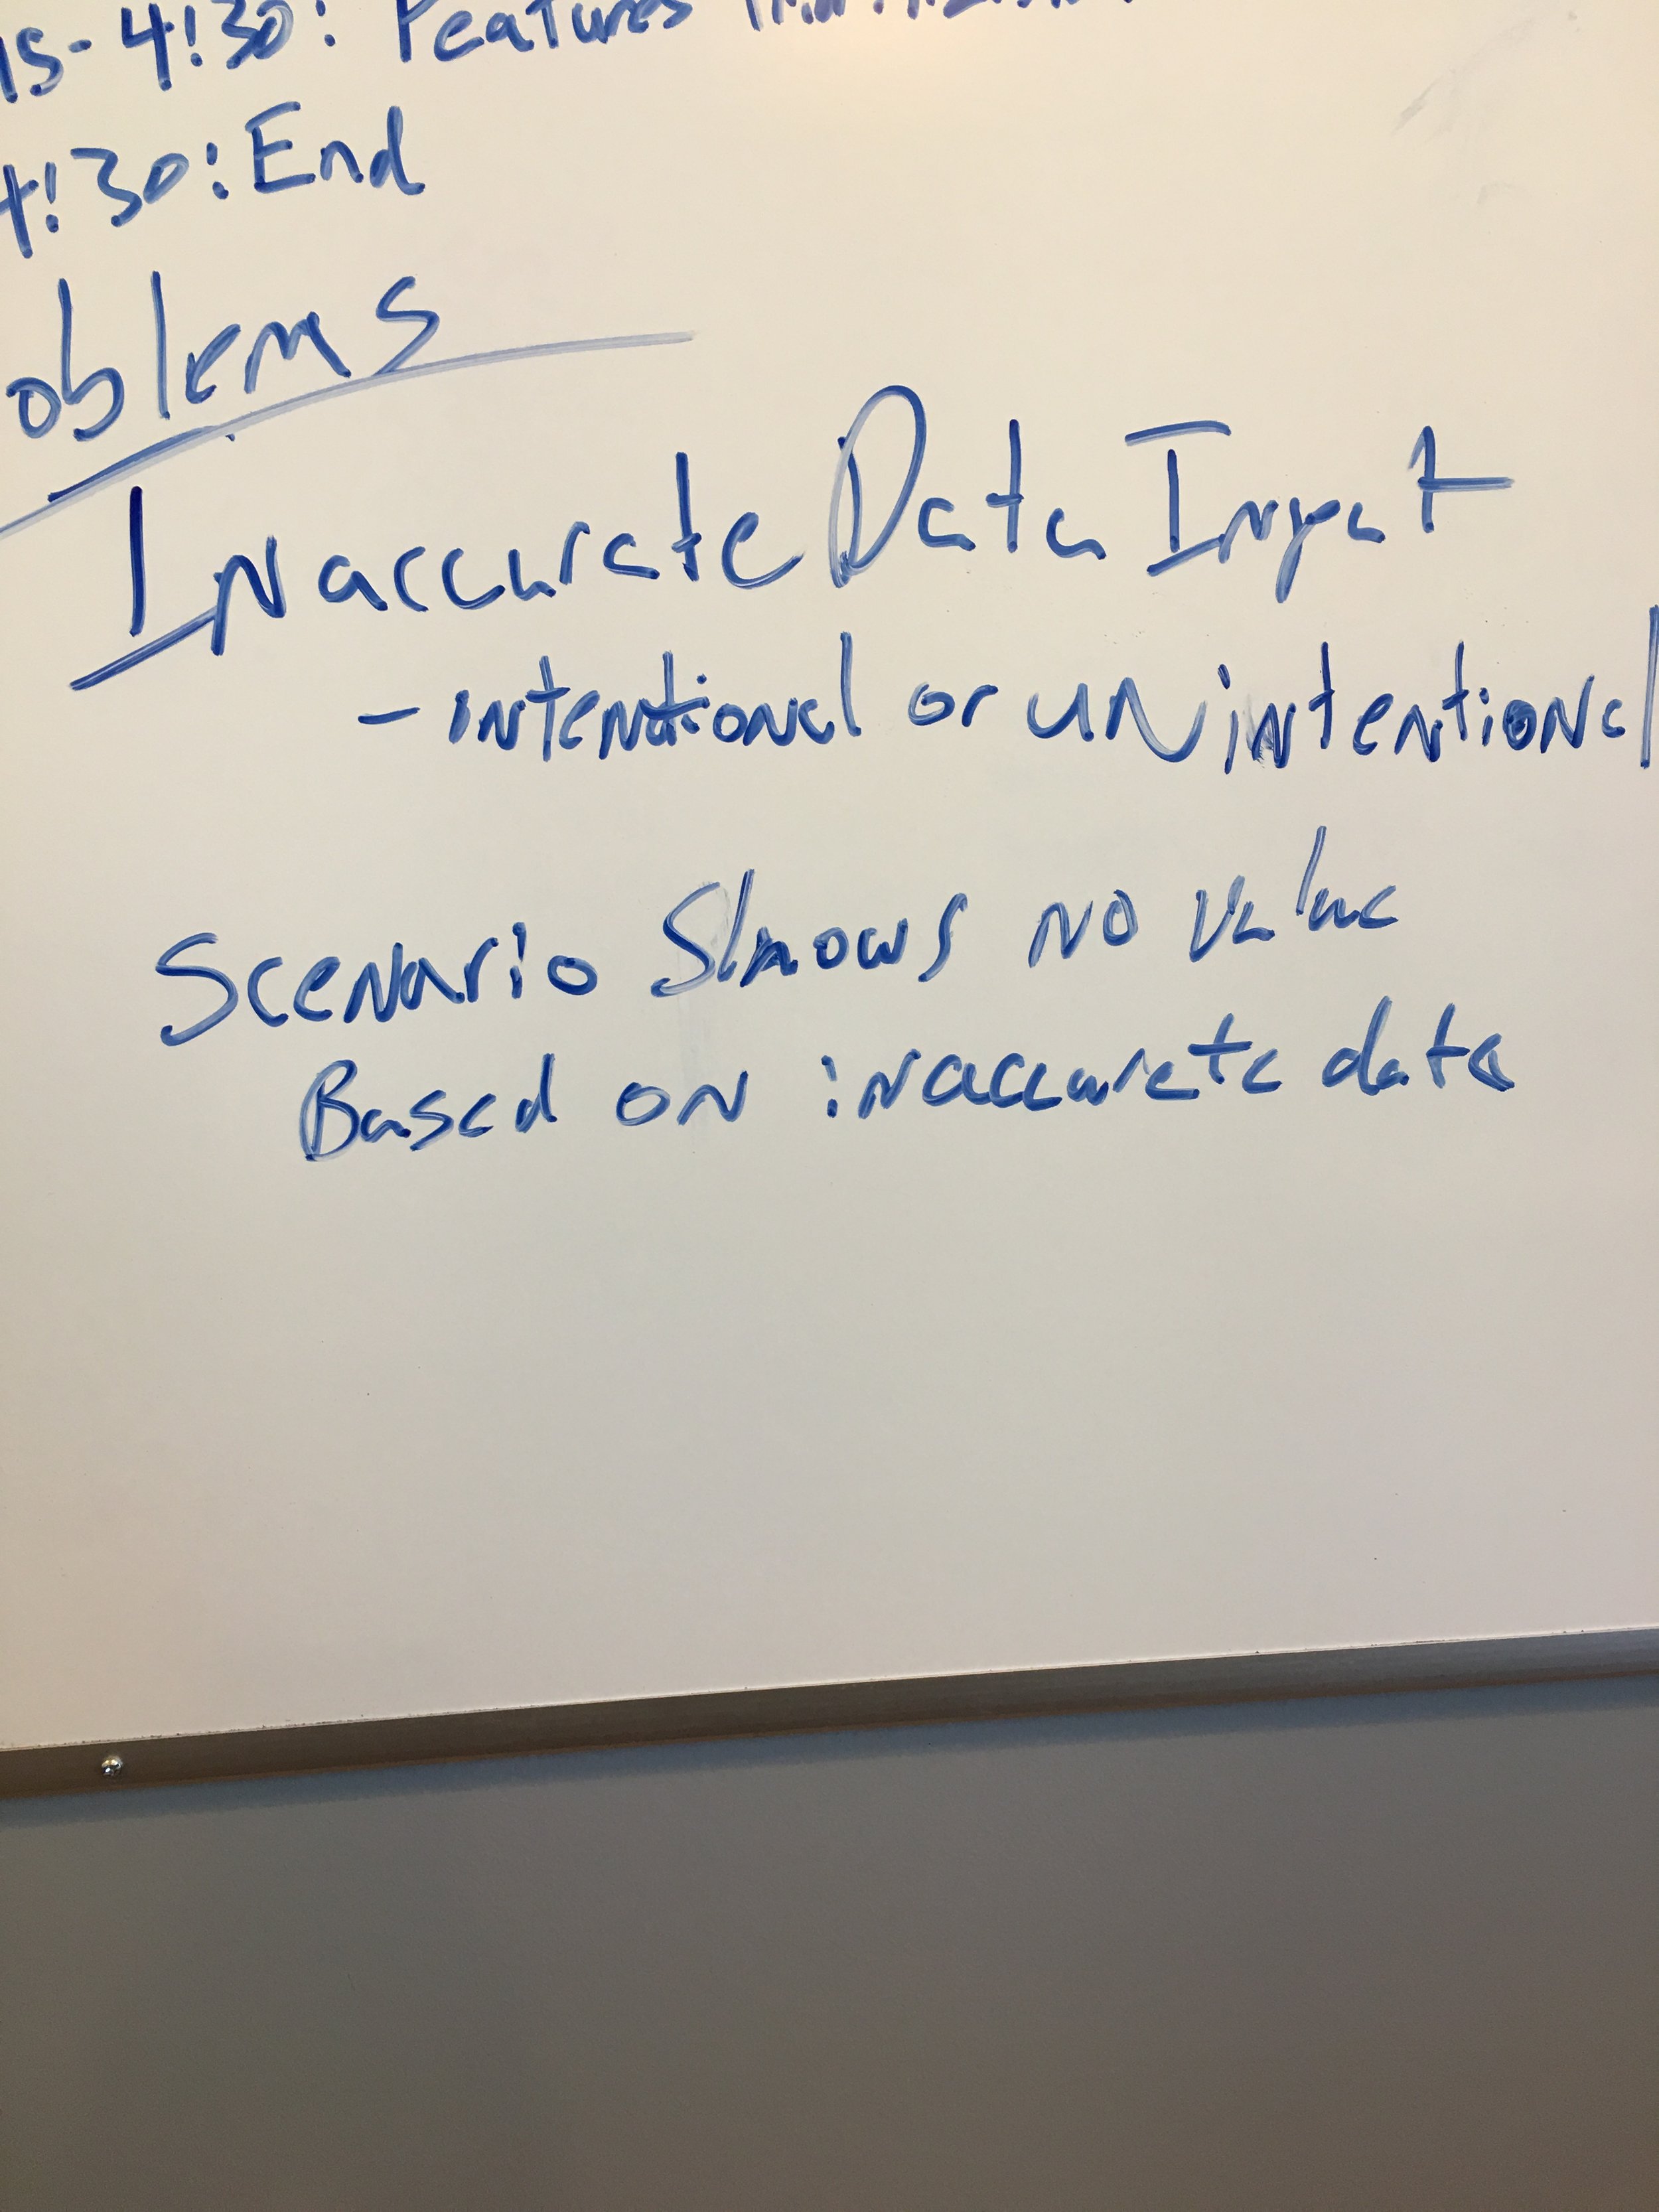 15-4:30: Features
4:30: End
oblems
Inaccurate Data Input
- intentional or unintentional
Scenario Shows no value
Based on inaccurate data